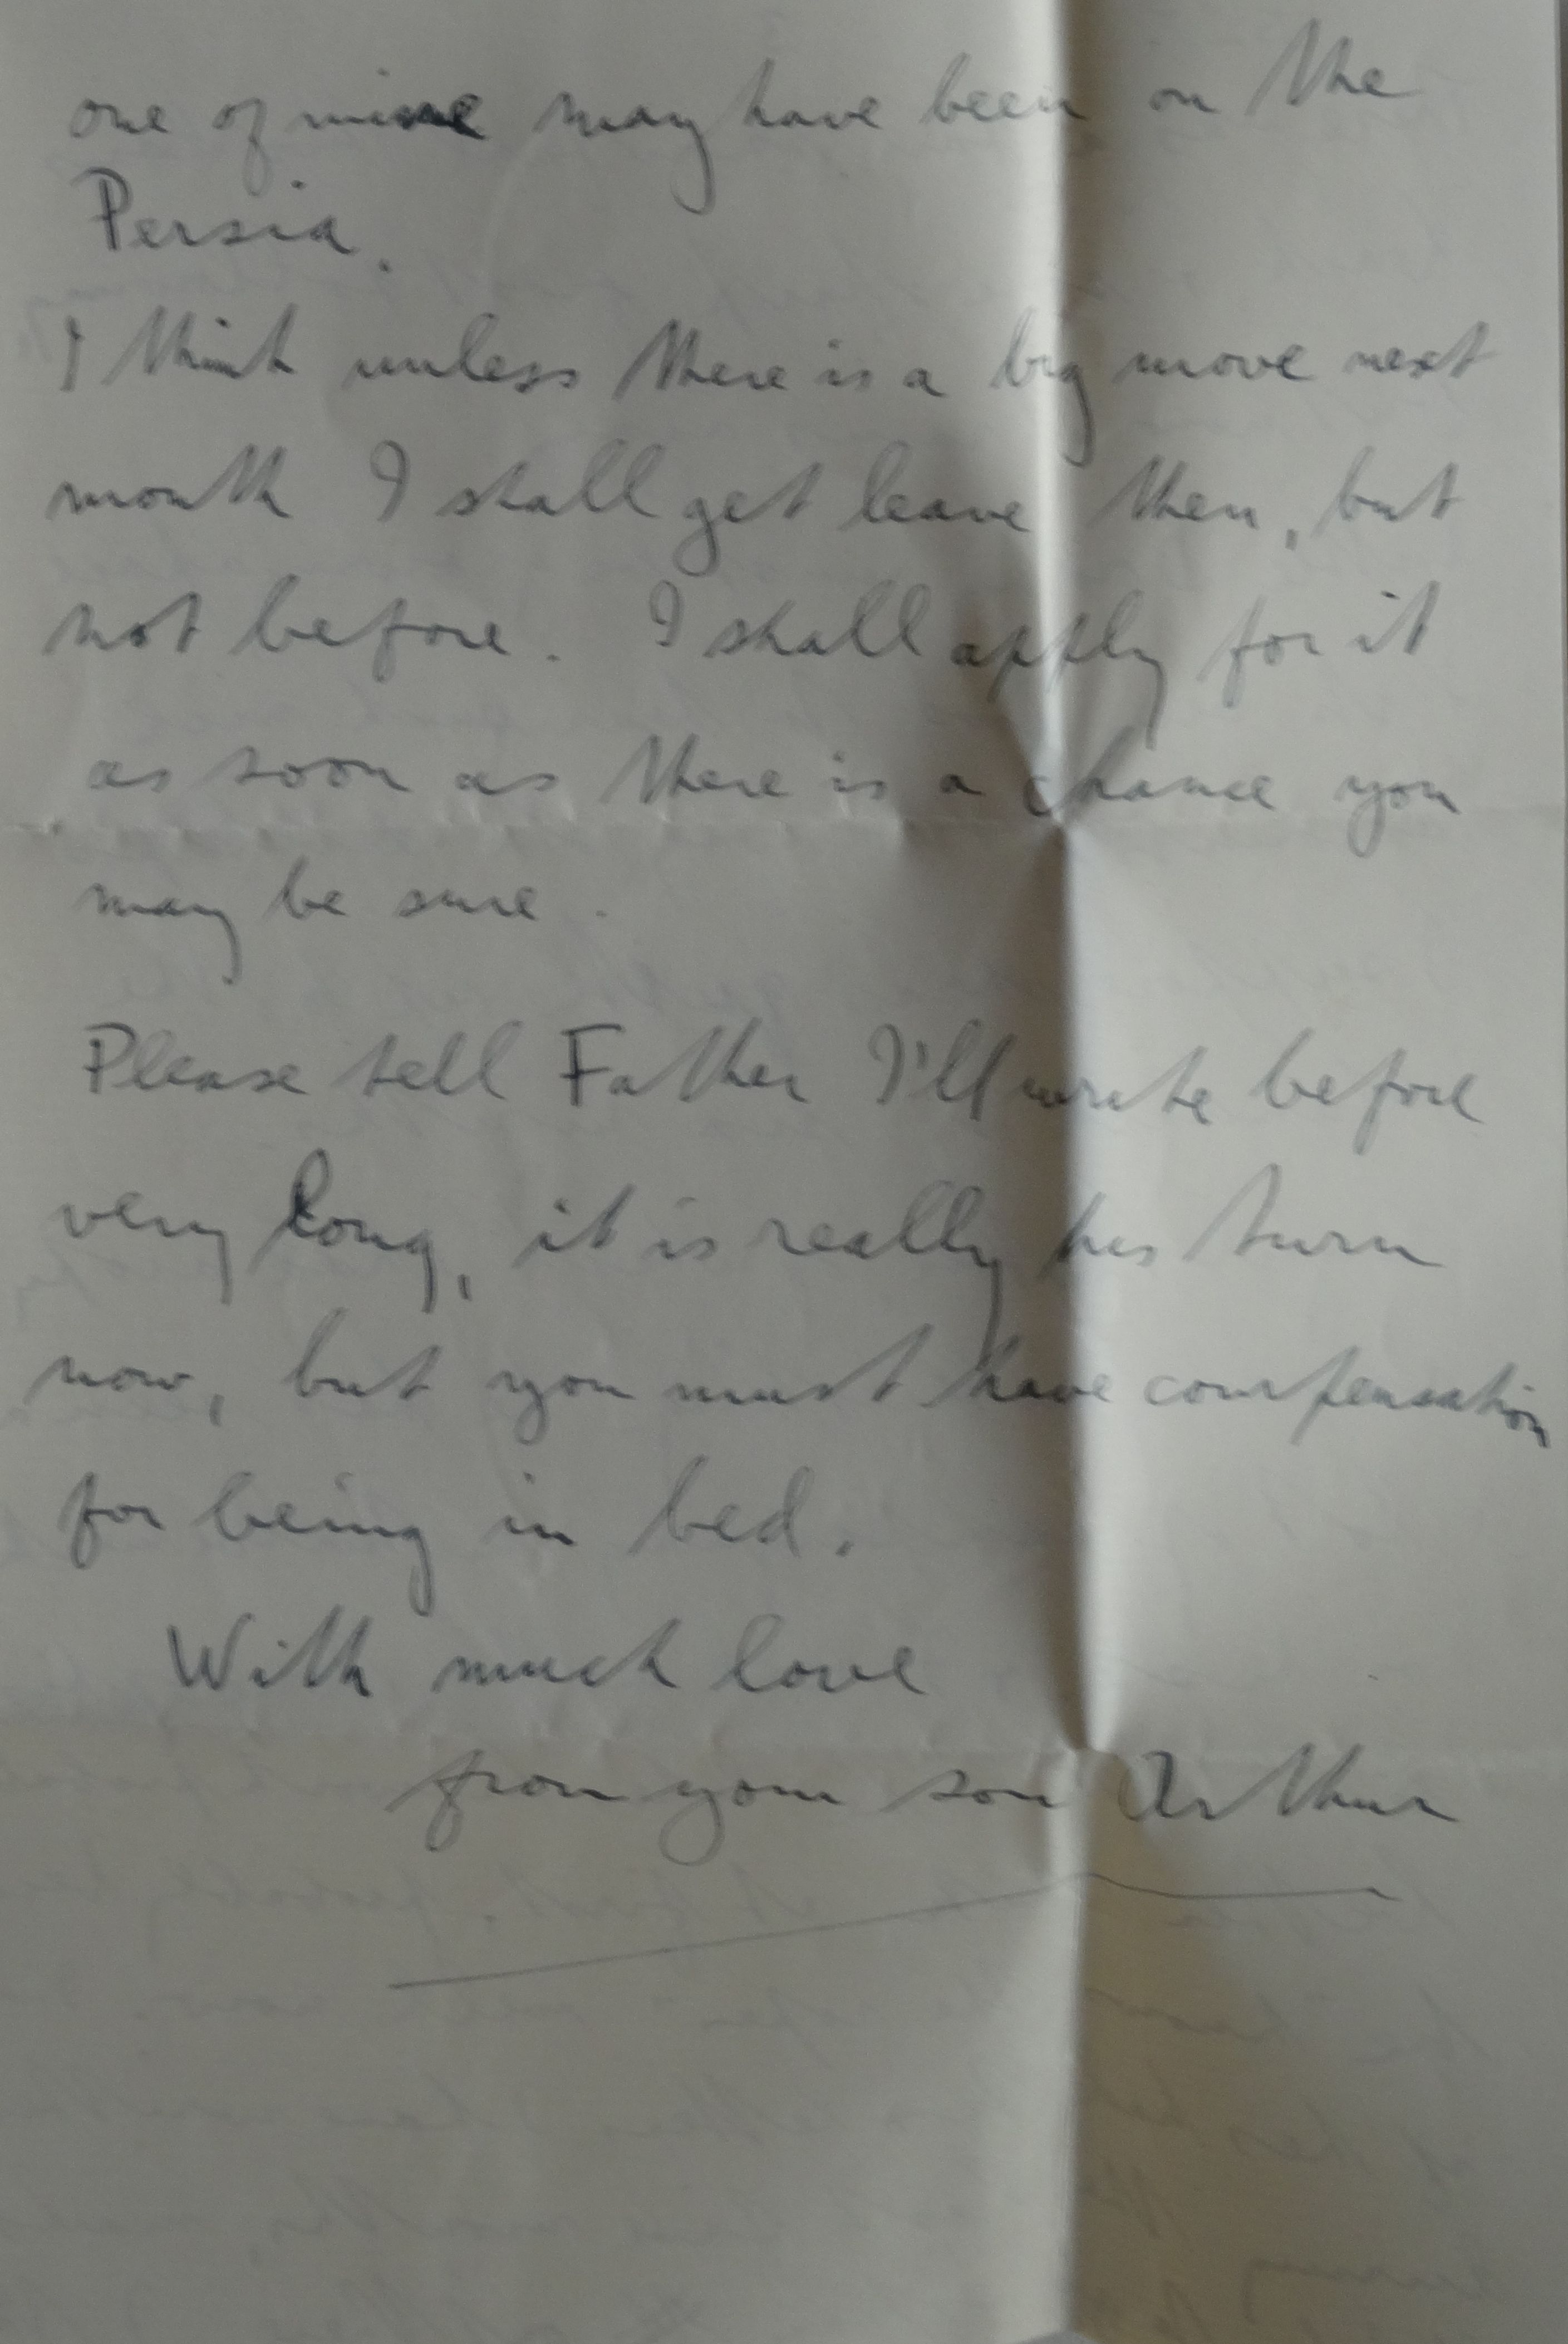 one of mine may have been on the
Persia.
I think unless there is a big move next
month I shall get leave then, but
not before. I shall apply for it
as soon as there is a chance you
may be sure.
Please tell Father I'll write before
very long, it is really his turn
now, but you must have compensation
for being in bed.
With much love
from your son Arthur